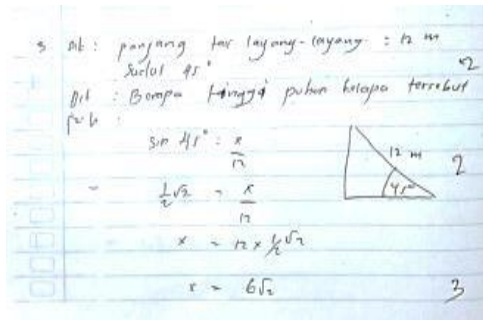 3 Dit : panjang tar layang-layang : 12 m
Sudut 45° 2
Dit : Berapa tinggi pohon kelapa tersebut
sin 45° : x/12
12 m
45°
2
1/2 √2 = x/12
x = 12 x 1/2 √2
x = 6√2 3